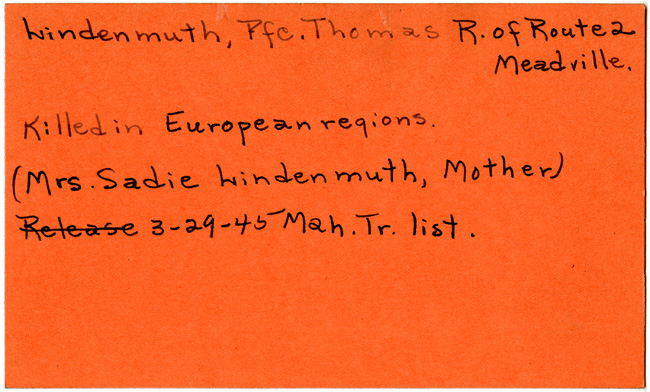 Lindenmuth, Pfc. Thomas R. of Route 2
Meadville.
Killed in European regions.
(Mrs. Sadie Lindenmuth, Mother)
Release 3-29-45 Mah. Tr. list.